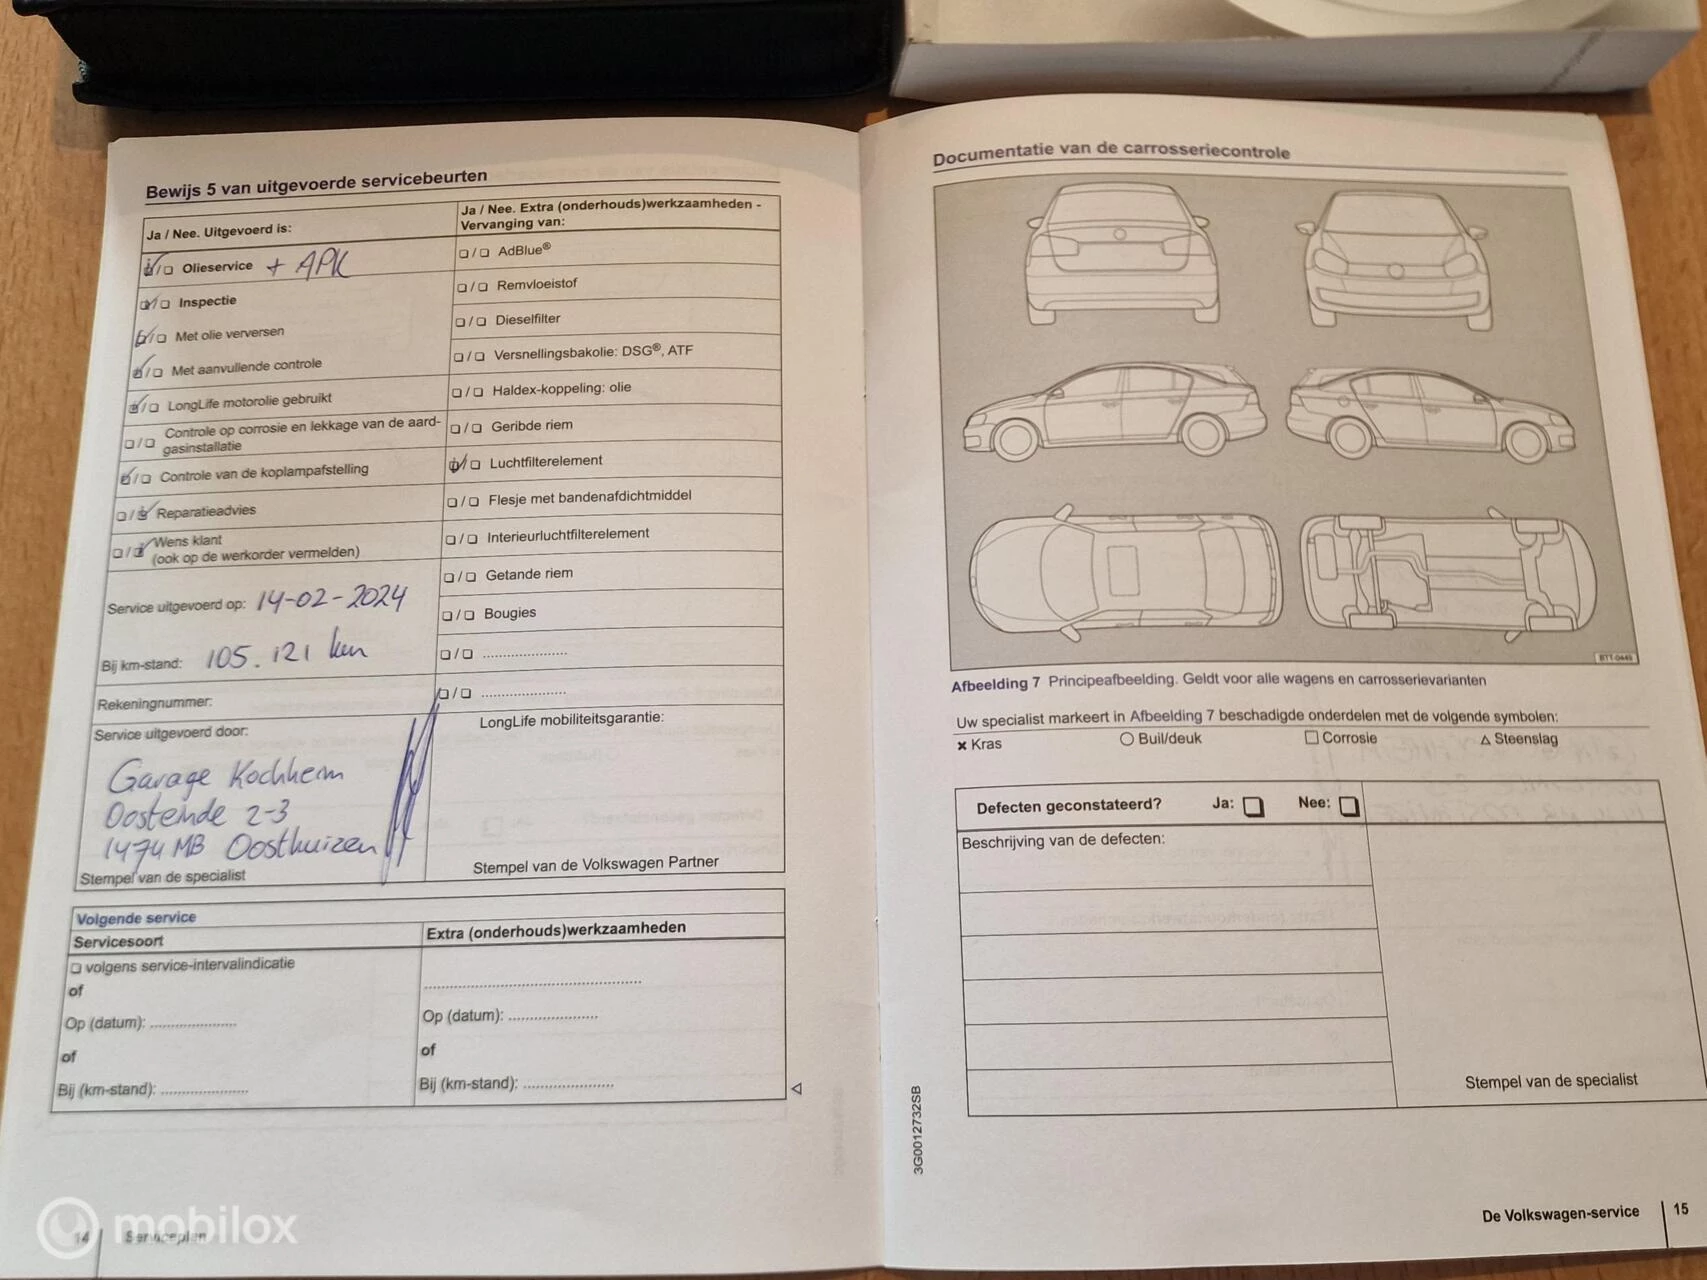 Bewijs 5 van uitgevoerde servicebeurten
Ja / Nee. Uitgevoerd is:
Olieservice + APK
Inspectie
Met olie verversen
Met aanvullende controle
LongLife motorolie gebruikt
Controle op corrosie en lekkage van de aard-
gasinstallatie
Controle van de koplampafstelling
Reparatieadvies
Wens klant
(ook op de werkorder vermelden)
Service uitgevoerd op: 14-02-2024
Bij km-stand: 105.121 km
Rekeningnummer:
Service uitgevoerd door:
Garage Kochheim
Oosteinde 2-3
1474 MB Oosthuizen
Stempel van de specialist
Ja / Nee. Extra (onderhouds)werkzaamheden -
Vervanging van:
AdBlue®
Remvloeistof
Dieselfilter
Versnellingsbakolie: DSG®, ATF
Haldex-koppeling: olie
Geribde riem
Luchtfilterelement
Flesje met bandenafdichtmiddel
Interieurluchtfilterelement
Getande riem
Bougies
LongLife mobiliteitsgarantie:
Stempel van de Volkswagen Partner
Volgende service
Servicesoort
volgens service-intervalindicatie
of
Op (datum): ....................
of
Bij (km-stand): ....................
Extra (onderhouds)werkzaamheden
Op (datum): ....................
of
Bij (km-stand): ....................
14 Serviceplan
mobilox
Documentatie van de carrosseriecontrole
BTT-0449
Afbeelding 7 Principeafbeelding. Geldt voor alle wagens en carrosserievarianten
Uw specialist markeert in Afbeelding 7 beschadigde onderdelen met de volgende symbolen:
× Kras ○ Buil/deuk □ Corrosie △ Steenslag
Defecten geconstateerd? Ja: Nee:
Beschrijving van de defecten:
Stempel van de specialist
3G0012732SB
De Volkswagen-service 15